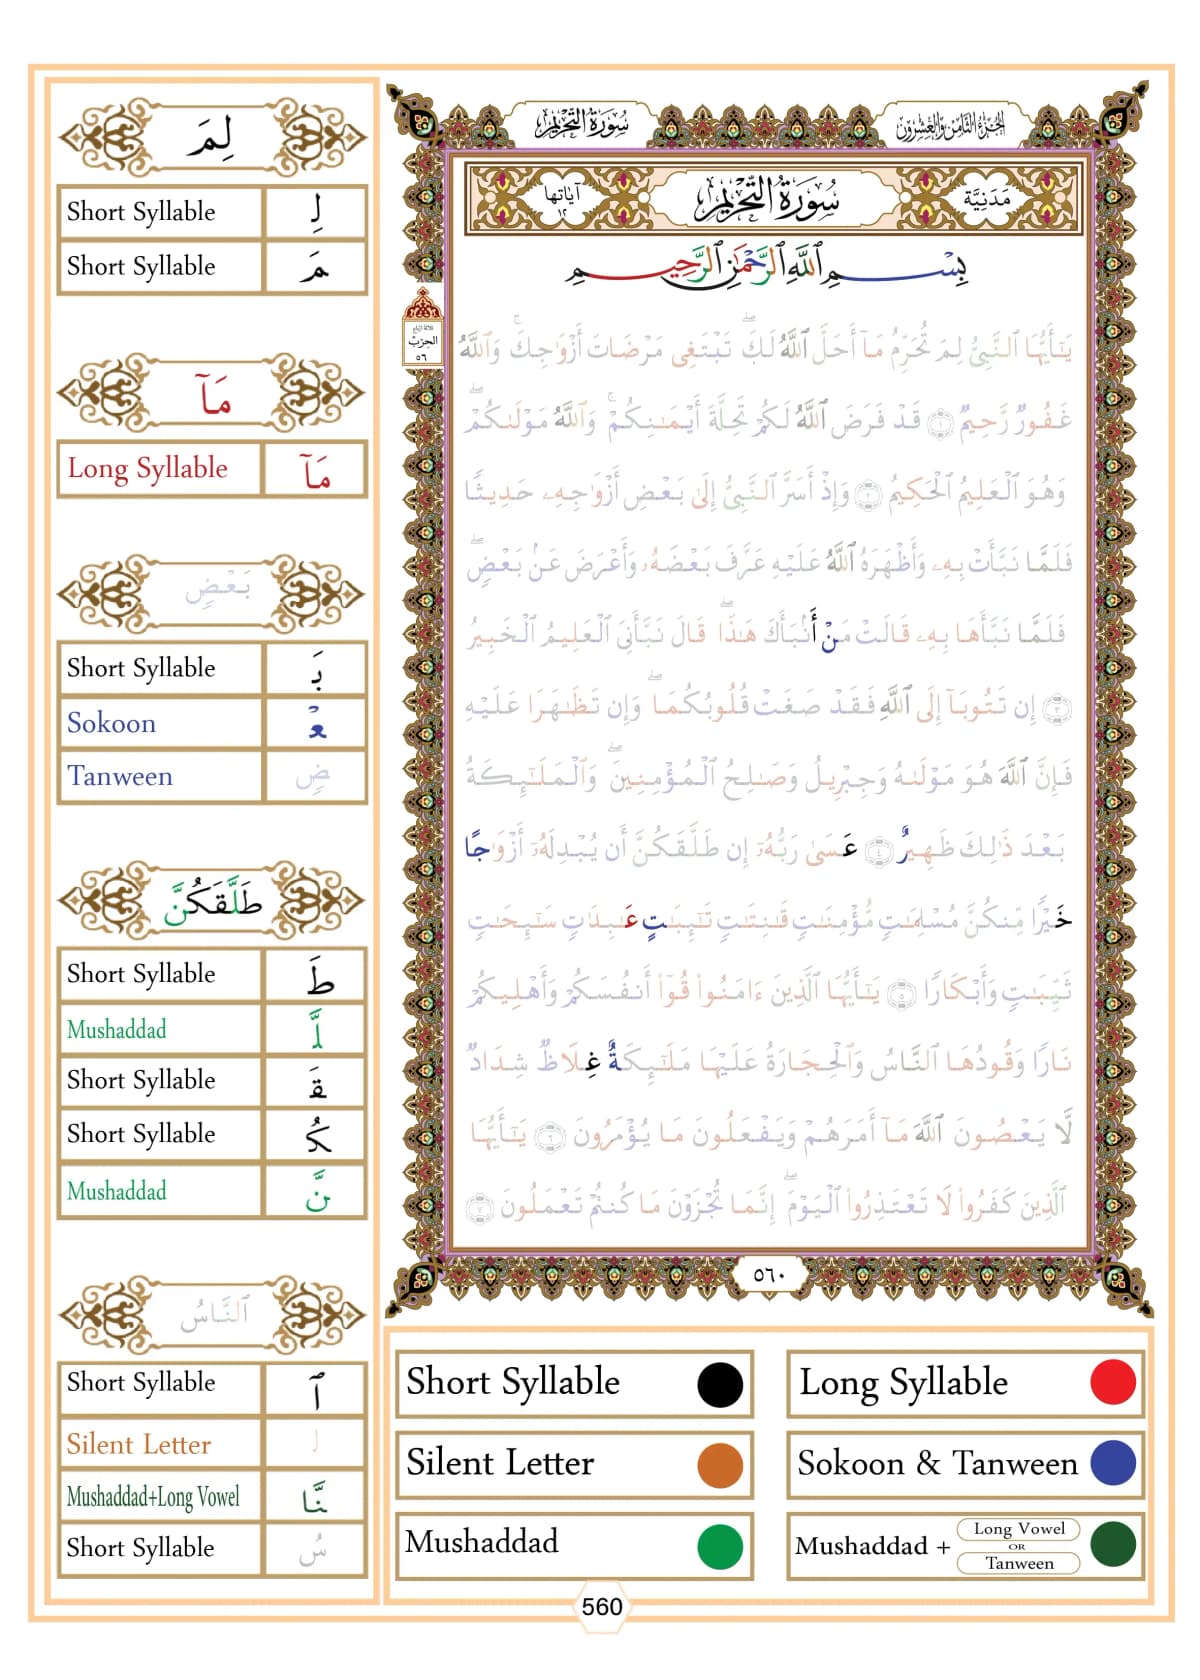 سُورَةُ التَّحْرِيمِ
الجُزْءُ الثَّامِنُ وَالعِشْرُونَ
مَدَنِيَّة
سُورَةُ التَّحْرِيمِ
آيَاتُهَا ١٢
بِسْمِ ٱللَّهِ ٱلرَّحْمَٰنِ ٱلرَّحِيمِ
ثلاثة أرباع
الحِزْب
٥٦
يَـٰٓأَيُّهَا ٱلنَّبِىُّ لِمَ تُحَرِّمُ مَآ أَحَلَّ ٱللَّهُ لَكَ ۖ تَبْتَغِى مَرْضَاتَ أَزْوَٰجِكَ ۚ وَٱللَّهُ
غَفُورٌ رَّحِيمٌ ١ قَدْ فَرَضَ ٱللَّهُ لَكُمْ تَحِلَّةَ أَيْمَـٰنِكُمْ ۚ وَٱللَّهُ مَوْلَىٰكُمْ ۖ
وَهُوَ ٱلْعَلِيمُ ٱلْحَكِيمُ ٢ وَإِذْ أَسَرَّ ٱلنَّبِىُّ إِلَىٰ بَعْضِ أَزْوَٰجِهِۦ حَدِيثًا
فَلَمَّا نَبَّأَتْ بِهِۦ وَأَظْهَرَهُ ٱللَّهُ عَلَيْهِ عَرَّفَ بَعْضَهُۥ وَأَعْرَضَ عَنۢ بَعْضٍ ۖ
فَلَمَّا نَبَّأَهَا بِهِۦ قَالَتْ مَنْ أَنۢبَأَكَ هَـٰذَا ۖ قَالَ نَبَّأَنِىَ ٱلْعَلِيمُ ٱلْخَبِيرُ
٣ إِن تَتُوبَآ إِلَى ٱللَّهِ فَقَدْ صَغَتْ قُلُوبُكُمَا ۖ وَإِن تَظَـٰهَرَا عَلَيْهِ
فَإِنَّ ٱللَّهَ هُوَ مَوْلَىٰهُ وَجِبْرِيلُ وَصَـٰلِحُ ٱلْمُؤْمِنِينَ ۖ وَٱلْمَلَـٰٓئِكَةُ
بَعْدَ ذَٰلِكَ ظَهِيرٌ ٤ عَسَىٰ رَبُّهُۥٓ إِن طَلَّقَكُنَّ أَن يُبْدِلَهُۥٓ أَزْوَٰجًا
خَيْرًا مِّنكُنَّ مُسْلِمَـٰتٍ مُّؤْمِنَـٰتٍ قَـٰنِتَـٰتٍ تَـٰٓئِبَـٰتٍ عَـٰبِدَٰتٍ سَـٰٓئِحَـٰتٍ
ثَيِّبَـٰتٍ وَأَبْكَارًا ٥ يَـٰٓأَيُّهَا ٱلَّذِينَ ءَامَنُوا۟ قُوٓا۟ أَنفُسَكُمْ وَأَهْلِيكُمْ
نَارًا وَقُودُهَا ٱلنَّاسُ وَٱلْحِجَارَةُ عَلَيْهَا مَلَـٰٓئِكَةٌ غِلَاظٌ شِدَادٌ
لَّا يَعْصُونَ ٱللَّهَ مَآ أَمَرَهُمْ وَيَفْعَلُونَ مَا يُؤْمَرُونَ ٦ يَـٰٓأَيُّهَا
ٱلَّذِينَ كَفَرُوا۟ لَا تَعْتَذِرُوا۟ ٱلْيَوْمَ ۖ إِنَّمَا تُجْزَوْنَ مَا كُنتُمْ تَعْمَلُونَ ٧
٥٦٠
لِمَ
Short Syllable لِـ
Short Syllable مَ
مَآ
Long Syllable مَآ
بَعْضٍ
Short Syllable بَـ
Sokoon ـعْـ
Tanween ضٍ
طَلَّقَكُنَّ
Short Syllable طَ
Mushaddad لَّـ
Short Syllable قَـ
Short Syllable كُـ
Mushaddad نَّ
ٱلنَّاسُ
Short Syllable ٱ
Silent Letter لـ
Mushaddad+Long Vowel نَّا
Short Syllable سُ
Short Syllable
Long Syllable
Silent Letter
Sokoon & Tanween
Mushaddad
Mushaddad + Long Vowel OR Tanween
560